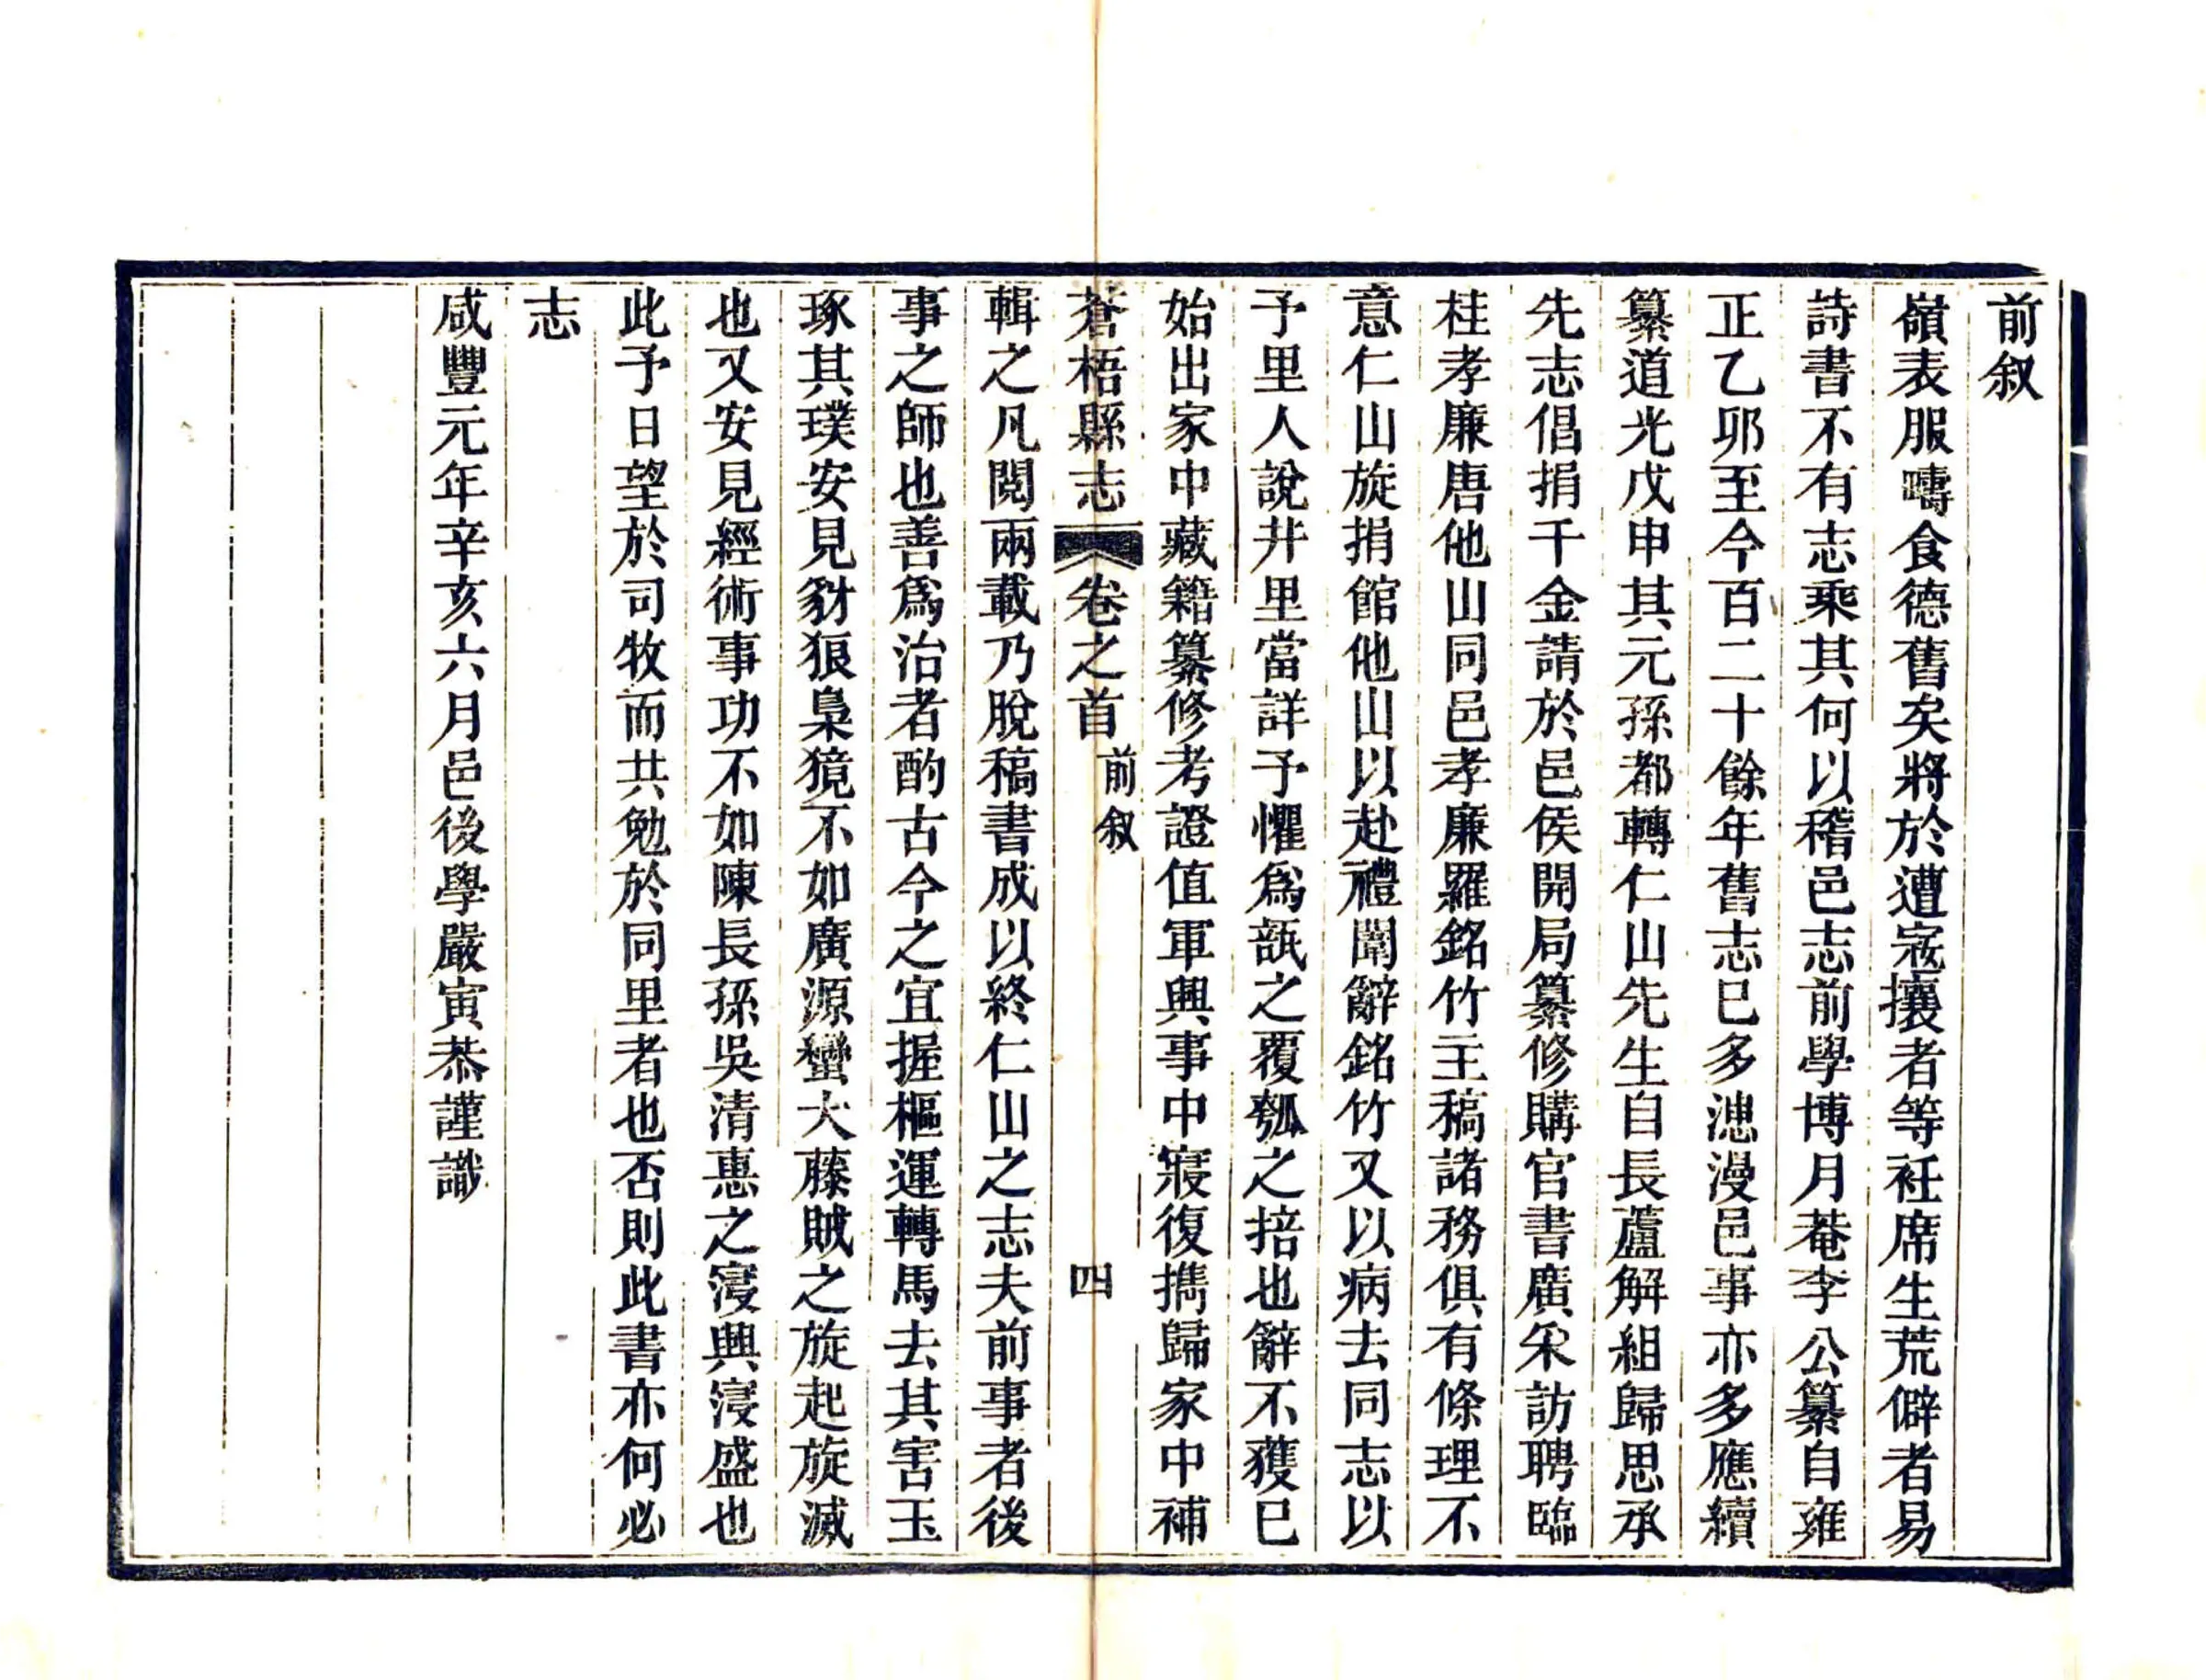 前叙
嶺表服疇食德舊矣將於遭寇攘者等衽席生荒僻者易
詩書不有志乘其何以稽邑志前學博月菴李公纂自雍
正乙夘至今百二十餘年舊志已多漶漫邑事亦多應續
纂道光戊申其元孫都轉仁山先生自長蘆解組歸思承
先志倡捐千金請於邑侯開局纂修購官書廣采訪聘臨
桂孝廉唐他山同邑孝廉羅銘竹主稿諸務俱有條理不
意仁山旋捐館他山以赴禮闈辭銘竹又以病去同志以
予里人說井里當詳予懼爲瓿之覆瓠之掊也辭不獲已
始出家中藏籍纂修考證值軍興事中寢復攜歸家中補
蒼梧縣志 卷之首 前叙 四
輯之凡閱兩載乃脫稿書成以終仁山之志夫前事者後
事之師也善爲治者酌古今之宜握樞運轉馬去其害玉
琢其璞安見豺狼梟獍不如廣源蠻大藤賊之旋起旋滅
也又安見經術事功不如陳長孫吳清惠之寖興寖盛也
此予日望於司牧而共勉於同里者也否則此書亦何必
志
咸豐元年辛亥六月邑後學嚴寅恭謹識